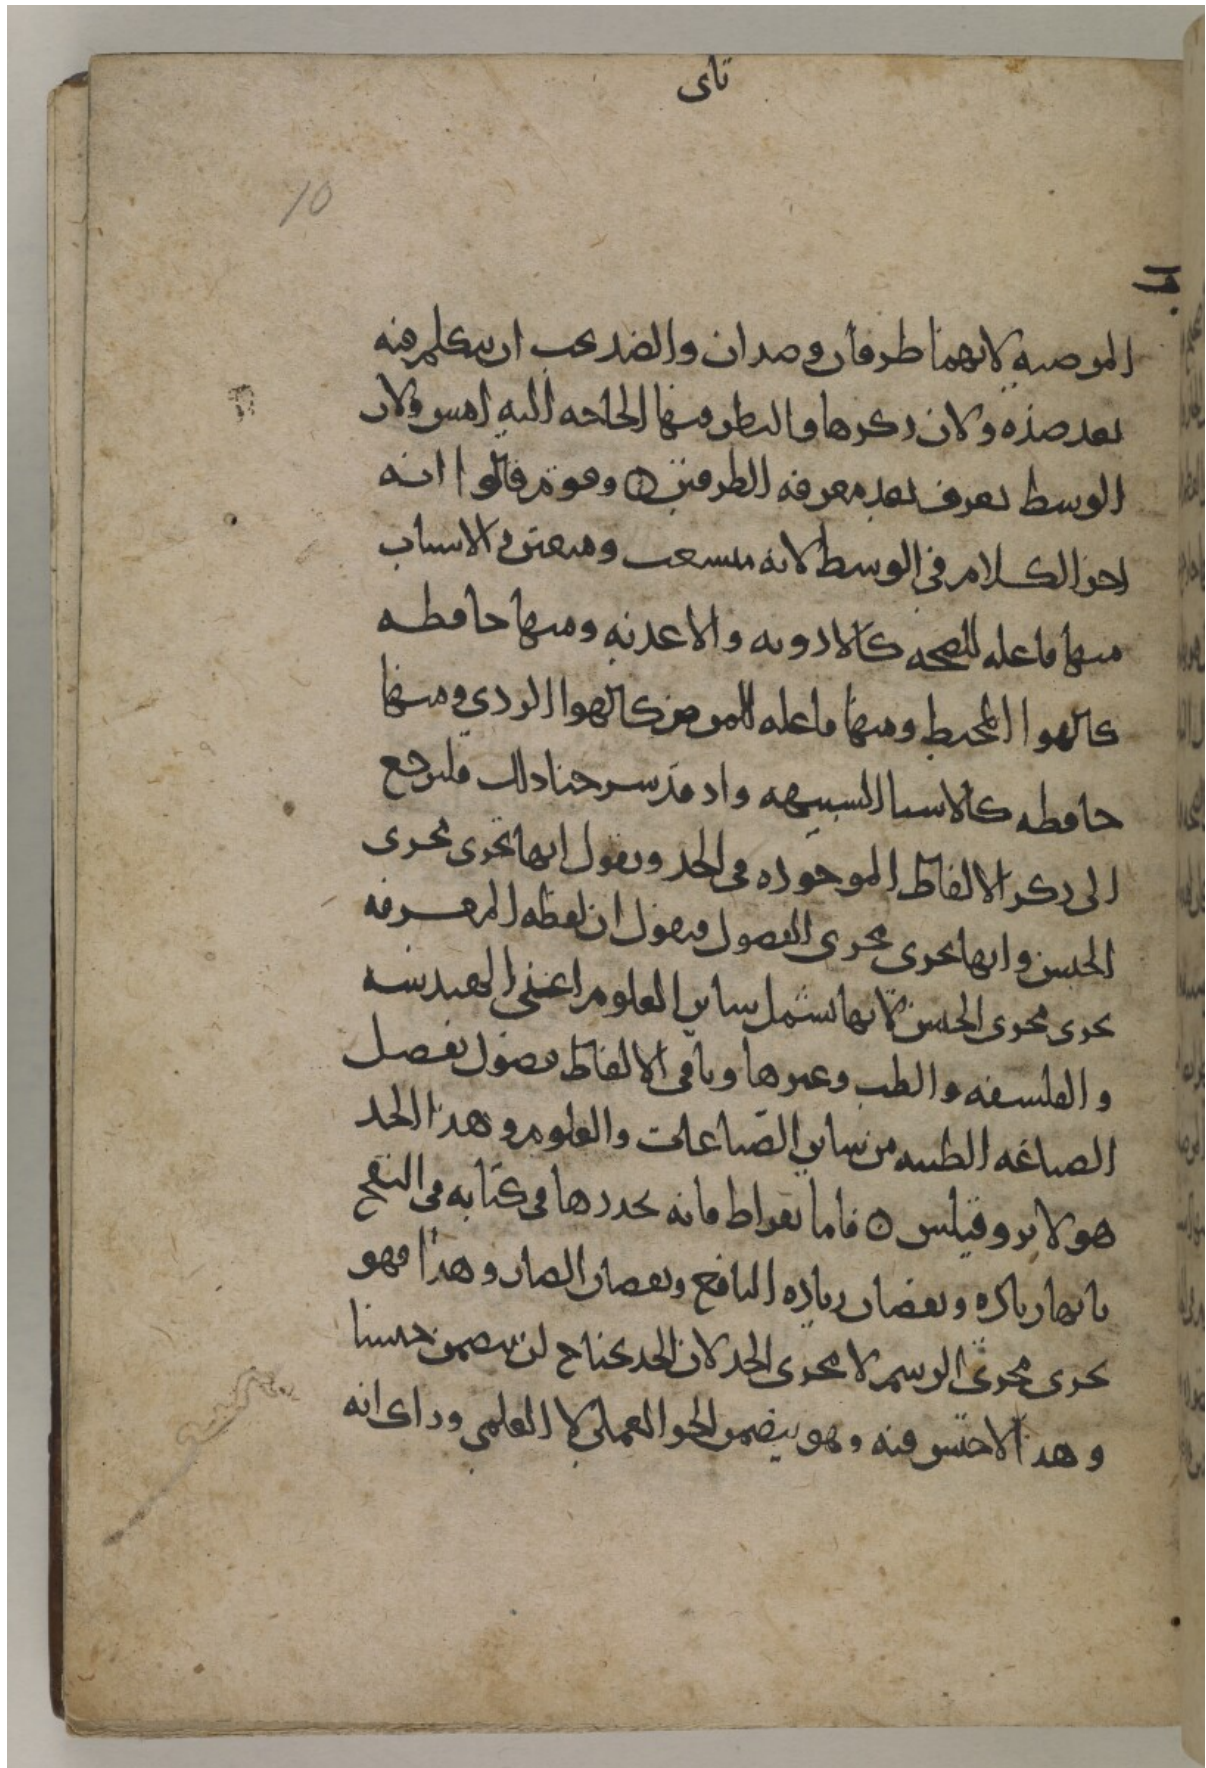 ثاى
10
المرضيه لانهما طرفان وضدان والضد يجب ان يتكلم فيه
بعد ضده ولان ذكرها والنظر فيها الحاجه اليه امس ولان
الوسط يعرف بعد معرفه الطرفين ٥ وقوم قالوا انه
اخر الكلام فى الوسط لانه متشعب ومفنن والاسباب
منها فاعله للصحه كالادويه والاغذيه ومنها حافظه
كالهوا المحيط ومنها فاعله للمرض كالهوا الردي ومنها
حافظه كالاشيا الشبيهه واذ قد شرحنا ذلك فلنرجع
الى ذكر الالفاظ الموجوده فى الحد ونقول ايها تجرى مجرى
الجنس وايها تجرى مجرى الفصول فنقول ان لفظه المعرفه
تجرى مجرى الجنس لانها تشمل ساير العلوم اعنى الهندسه
والفلسفه والطب وغيرها وباقى الالفاظ فصول تفصل
الصناعه الطبيه من ساير الصناعات والعلوم وهذا الحد
هو لايروفيلس ٥ فاما بقراط فانه يحددها فى كتابه فى النفخ
بانها زياده ونقصان زياده النافع ونقصان الضار وهذا فهو
يجرى مجرى الرسم لا مجرى الحد لان الحد يحتاج ان يتضمن جنسا
وهذا لا جنس فيه وهو يتضمن الجزو العملى لا العلمى وراى انه